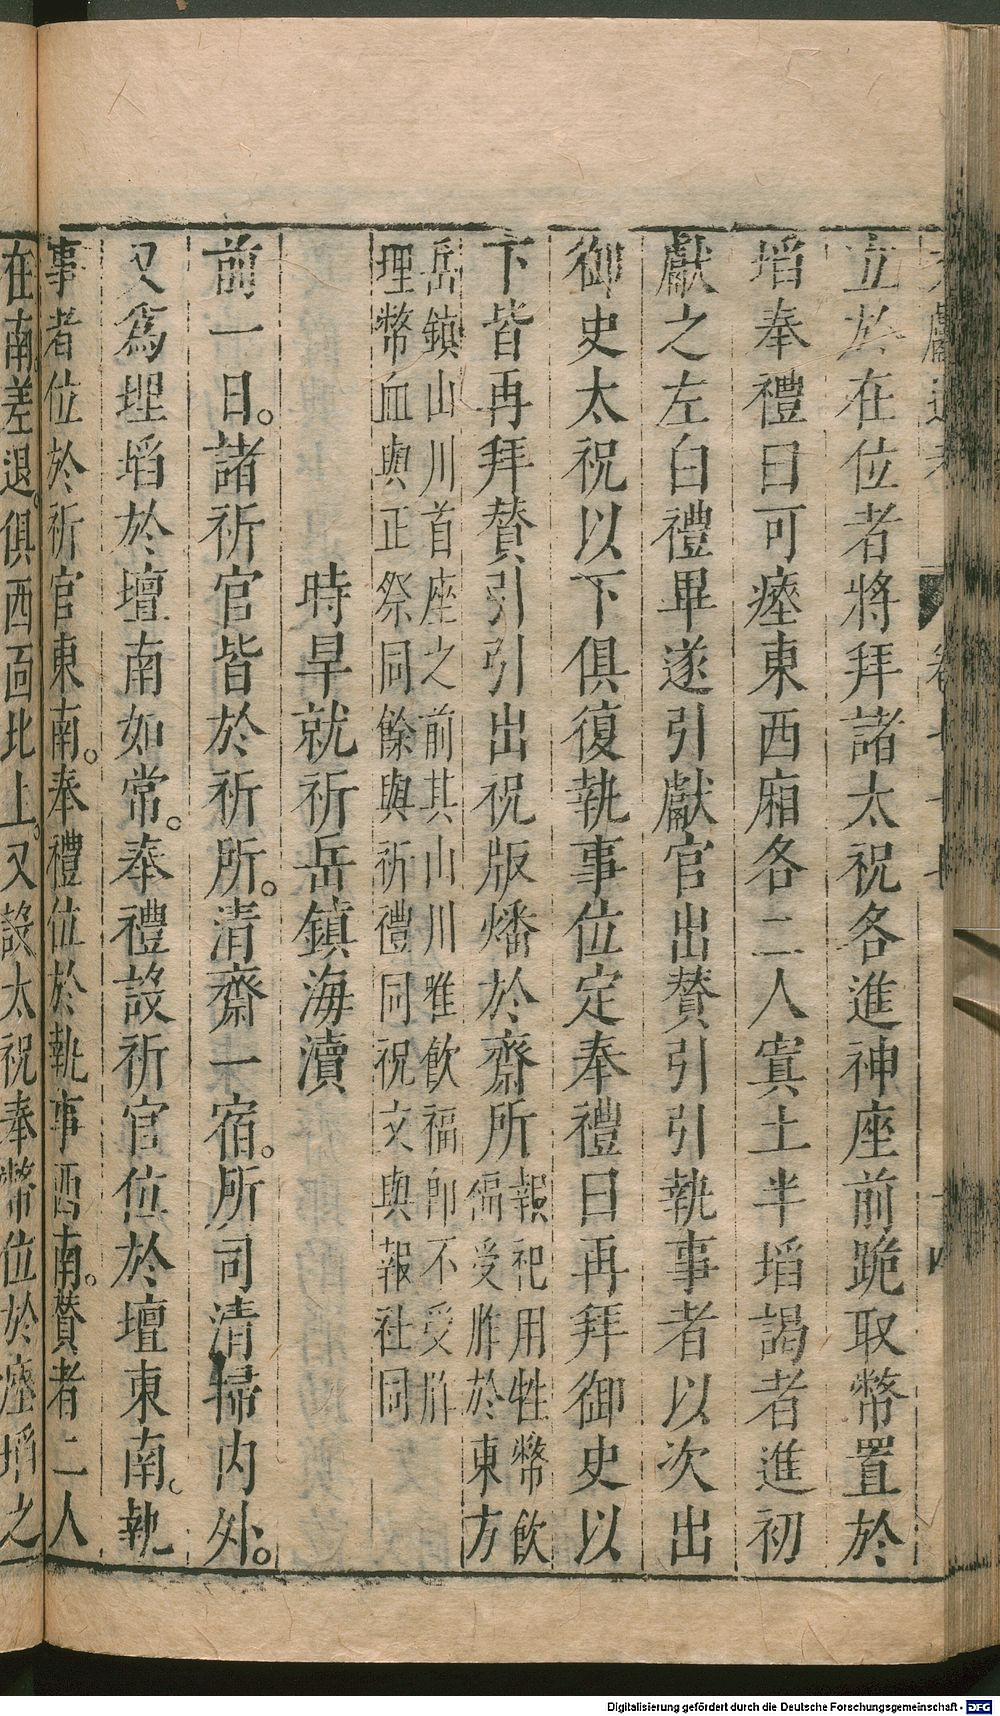 立於在位者將拜諸太祝各進神座前跪取幣置於
埳奉禮曰可瘞東西廂各二人窴土半埳謁者進初
獻之左白禮畢遂引獻官出贊引引執事者以次出
御史太祝以下俱復執事位定奉禮曰再拜御史以
下皆再拜贊引引出祝版燔於齋所報祀用牲幣飲
福受胙於東方
岳鎮山川首座之前其山川雅飲福即不受胙
理幣血與正祭同餘與祈禮同祝文與報社同
時旱就祈岳鎮海瀆
前一日。諸祈官皆於祈所。清齋一宿。所司清掃内外。
又為埋埳於壇南如常。奉禮設祈官位於壇東南。執
事者位於祈官東南。奉禮位於執事西南。贊者二人
在南差退。俱西面北上。又設太祝奉幣位於瘞埳之
Digitalisierung gefördert durch die Deutsche Forschungsgemeinschaft - DFG